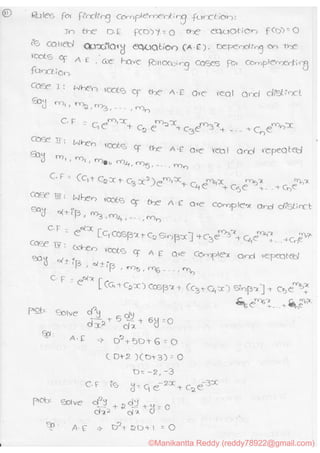 ①
Rules for finding complementing function:
In the D.E F(D)Y = 0 the equation f(D) = 0
is called auxilary equation (A.E). Depending on the
roots of A.E, we have following cases for complementing
function
Case I: When roots of the A.E are real and distinct
say m₁, m₂, m₃, ..., mₙ
C.F = C₁e^{m₁x} + C₂e^{m₂x} + C₃e^{m₃x} + ... + Cₙe^{mₙx}
Case II: When roots of the A.E are real and repeated
say m₁, m₁, m₁, m₄, m₅, ..., mₙ
C.F = (C₁ + C₂x + C₃x²)e^{m₁x} + C₄e^{m₄x} + C₅e^{m₅x} + ... + Cₙe^{mₙx}
Case III: When roots of the A.E are complex and distinct
say α±iβ, m₃, m₄, ..., mₙ
C.F = e^{αx} [C₁cosβx + C₂ sinβx] + C₃e^{m₃x} + C₄e^{m₄x} + ... + Cₙe^{mₙx}
Case IV: When roots of A.E are complex and repeated
say α±iβ, α±iβ, m₅, m₆, ..., mₙ
C.F = e^{αx} [(C₁ + C₂x) cosβx + (C₃ + C₄x) sinβx] + C₅e^{m₅x}
+ ... + Cₙe^{mₙx}
prob: Solve d²y/dx² + 5 dy/dx + 6y = 0
Sol: A.E ⇒ D² + 5D + 6 = 0
(D+2)(D+3) = 0
D = -2, -3
C.F is y = C₁e^{-2x} + C₂e^{-3x}
prob: Solve d²y/dx² + 2 dy/dx + y = 0
Sol: A.E ⇒ D² + 2D + 1 = 0
©Manikantta Reddy (reddy78922@gmail.com)